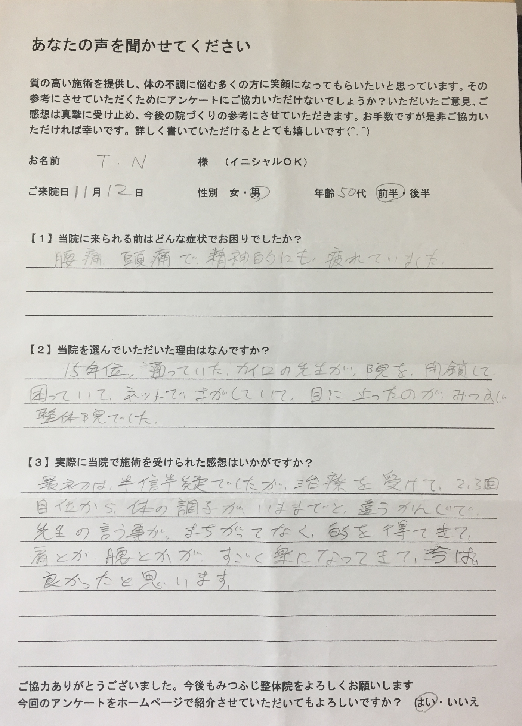 あなたの声を聞かせてください
質の高い施術を提供し、体の不調に悩む多くの方に笑顔になってもらいたいと思っています。その
参考にさせていただくためにアンケートにご協力いただけないでしょうか？いただいたご意見、ご
感想は真摯に受け止め、今後の院づくりの参考にさせていただきます。お手数ですが是非ご協力い
ただければ幸いです。詳しく書いていただけるととても嬉しいです(^-^)
お名前 T.N 様 （イニシャルOK）
ご来院日 11月12日 性別 女・男 年齢 50代 前半・後半
【1】当院に来られる前はどんな症状でお困りでしたか？
腰痛 頭痛で、精神的にも、疲れていました。
【2】当院を選んでいただいた理由はなんですか？
15年位、通っていた、カイロの先生が、院を、閉鎖して
困っていて、ネットでさがしていて、目に止ったのがみつふじ
整体院でした。
【3】実際に当院で施術を受けられた感想はいかがですか？
最初は、半信半疑でしたが、治療を受けて、2,3回
目位から、体の調子が、いままでと、違うかんじで、
先生の言う事が、まちがってなく、的を得ってきて、
肩とか腰とかが、すごく楽になってきて、今は、
良かったと思います。
ご協力ありがとうございました。今後もみつふじ整体院をよろしくお願いします
今回のアンケートをホームページで紹介させていただいてもよろしいですか？ はい・いいえ